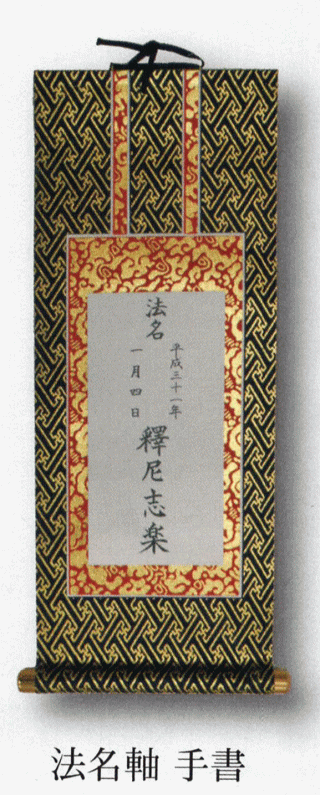 法名
平成三十一年
一月四日
釋尼志楽
法名軸 手書